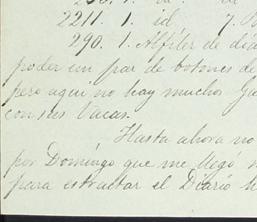 2211. 1. id. 7.
290. 1. Alfiler de dia
poder un par de botones de
pero aqui no hay muchos
con sus vacas.
Hasta ahora no
por Domingo que me llegó
para estractar el Diario